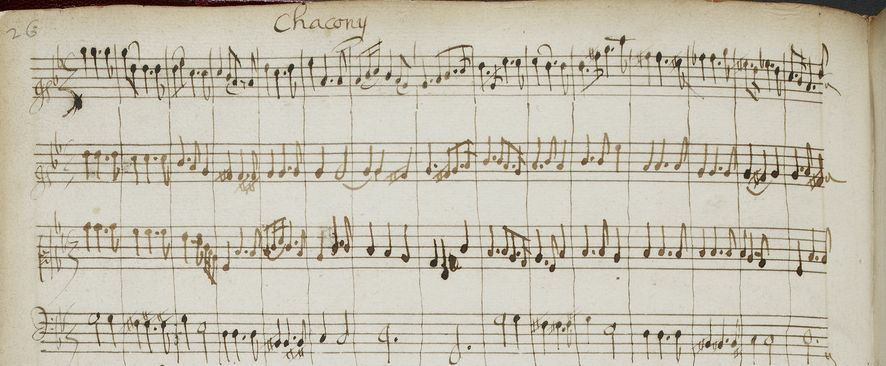 26
Chacony